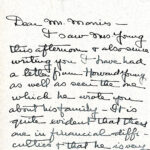 Dear Mr. Morris -
I saw Mrs Young
this afternoon & also since
writing you I have had
a letter from Howard Young,
as well as seen the one
which he wrote you
about his family - It is
quite evident that they
are in financial diffi-
culties & that he is very